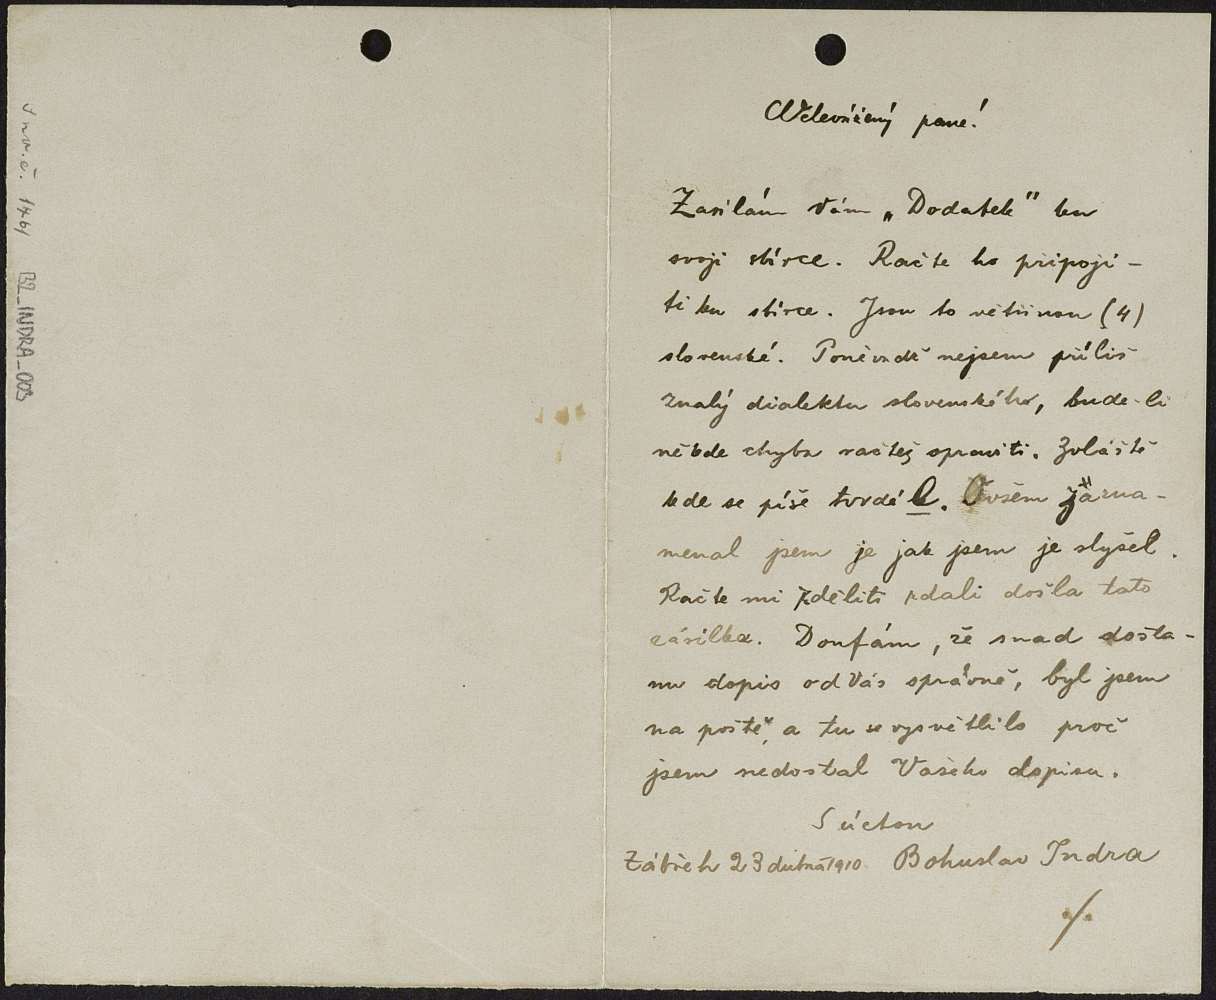 Inv. č. 1461 B2_INDRA_003
Velevážený pane!
Zasílám Vám „Dodatek" ku
svoji sbírce. Račte ho připoji-
ti ku sbírce. Jsou to většinou (4)
slovenské. Poněvadž nejsem příliš
znalý dialektu slovenského, bude-li
někde chyba račtež spraviti. Zvláště
kde se píše tvrdé l. Ovšem zazna-
menal jsem je jak jsem je slyšel.
Račte mi sděliti zdali došla tato
zásilka. Doufám, že snad dosta-
nu dopis od Vás správně, byl jsem
na poště, a tu se vysvětlilo proč
jsem nedostal Vašeho dopisu.
S úctou
Zábřeh 23 dubna 1910. Bohuslav Indra
./.